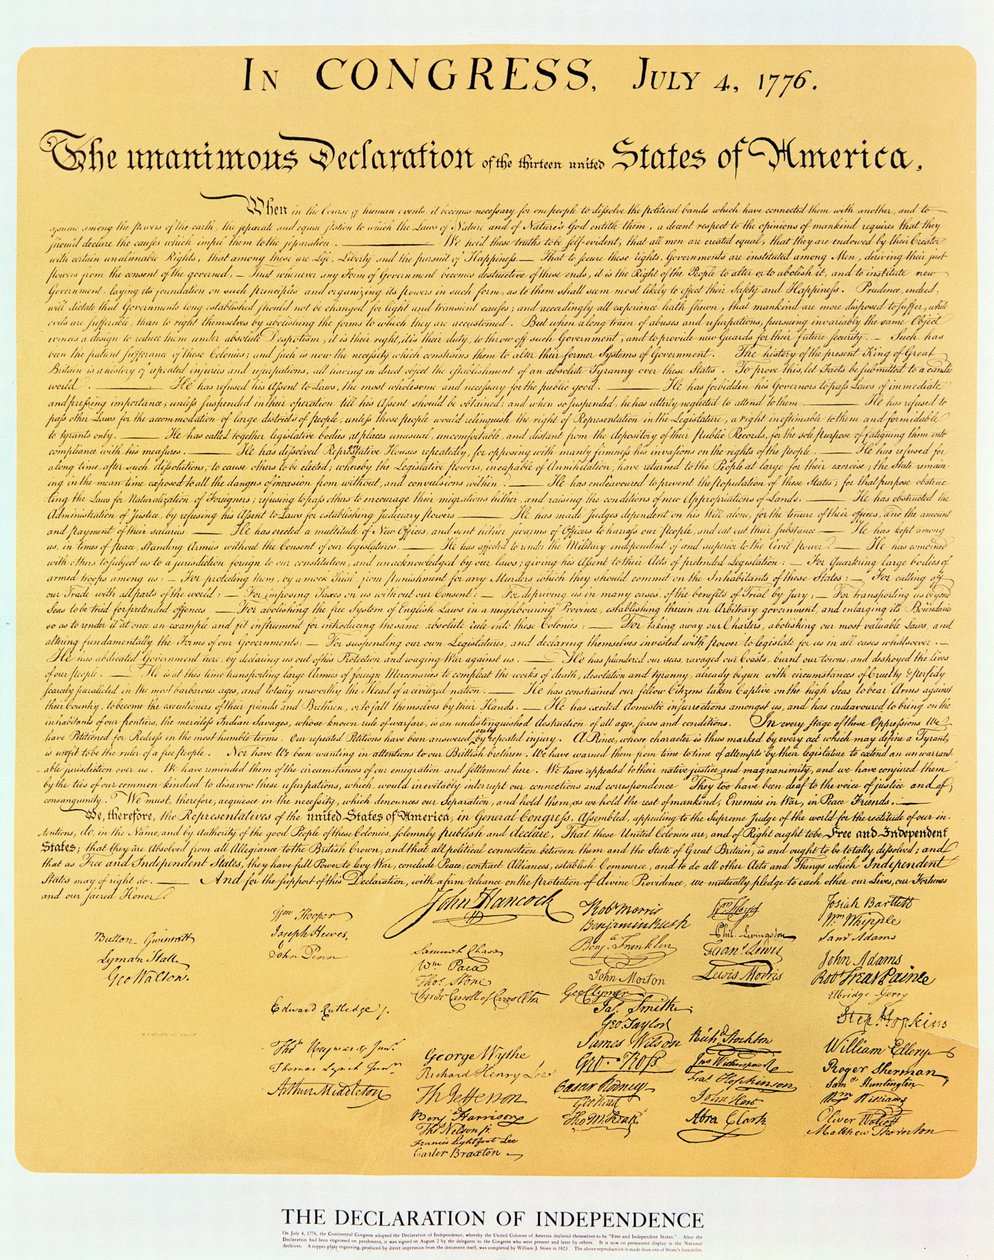 IN CONGRESS, JULY 4, 1776.
The unanimous Declaration of the thirteen united States of America,
When in the Course of human events, it becomes necessary for one people to dissolve the political bands which have connected them with another, and to
assume among the powers of the earth, the separate and equal station to which the Laws of Nature and of Nature's God entitle them, a decent respect to the opinions of mankind requires that they
should declare the causes which impel them to the separation. — We hold these truths to be self-evident, that all men are created equal, that they are endowed by their Creator
with certain unalienable Rights, that among these are Life, Liberty and the pursuit of Happiness — That to secure these rights, Governments are instituted among Men, deriving their just
powers from the consent of the governed, — That whenever any Form of Government becomes destructive of these ends, it is the Right of the People to alter or to abolish it, and to institute new
Government, laying its foundation on such principles and organizing its powers in such form, as to them shall seem most likely to effect their Safety and Happiness. Prudence, indeed,
will dictate that Governments long established should not be changed for light and transient causes; and accordingly all experience hath shewn, that mankind are more disposed to suffer, while
evils are sufferable, than to right themselves by abolishing the forms to which they are accustomed. But when a long train of abuses and usurpations, pursuing invariably the same Object
evinces a design to reduce them under absolute Despotism, it is their right, it is their duty, to throw off such Government, and to provide new Guards for their future security. — Such has
been the patient sufferance of these Colonies; and such is now the necessity which constrains them to alter their former Systems of Government. The history of the present King of Great
Britain is a history of repeated injuries and usurpations, all having in direct object the establishment of an absolute Tyranny over these States. To prove this, let Facts be submitted to a candid
world. — He has refused his Assent to Laws, the most wholesome and necessary for the public good. — He has forbidden his Governors to pass Laws of immediate
and pressing importance, unless suspended in their operation till his Assent should be obtained; and when so suspended, he has utterly neglected to attend to them. — He has refused to
pass other Laws for the accommodation of large districts of people, unless those people would relinquish the right of Representation in the Legislature, a right inestimable to them and formidable
to tyrants only. — He has called together legislative bodies at places unusual, uncomfortable, and distant from the depository of their Public Records, for the sole purpose of fatiguing them into
compliance with his measures. — He has dissolved Representative Houses repeatedly, for opposing with manly firmness his invasions on the rights of the people. — He has refused for
a long time, after such dissolutions, to cause others to be elected; whereby the Legislative powers, incapable of Annihilation, have returned to the People at large for their exercise; the State remain
ing in the mean time exposed to all the dangers of invasion from without, and convulsions within. — He has endeavoured to prevent the Population of these States; for that purpose obstruc
ting the Laws for Naturalization of Foreigners; refusing to pass others to encourage their migrations hither, and raising the conditions of new Appropriations of Lands. — He has obstructed the
Administration of Justice, by refusing his Assent to Laws for establishing Judiciary powers. — He has made Judges dependent on his Will alone, for the tenure of their offices, and the amount
and payment of their salaries. — He has erected a multitude of New Offices, and sent hither swarms of Officers to harrass our people, and eat out their substance. — He has kept among
us, in times of peace, Standing Armies without the Consent of our legislatures. — He has affected to render the Military independent of and superior to the Civil power. — He has combined
with others to subject us to a jurisdiction foreign to our constitution, and unacknowledged by our laws; giving his Assent to their Acts of pretended Legislation: — For Quartering large bodies of
armed troops among us: — For protecting them, by a mock Trial, from punishment for any Murders which they should commit on the Inhabitants of these States: — For cutting off
our Trade with all parts of the world: — For imposing Taxes on us without our Consent: — For depriving us in many cases, of the benefits of Trial by Jury: — For transporting us beyond
Seas to be tried for pretended offences — For abolishing the free System of English Laws in a neighbouring Province, establishing therein an Arbitrary government, and enlarging its Boundaries
so as to render it at once an example and fit instrument for introducing the same absolute rule into these Colonies: — For taking away our Charters, abolishing our most valuable Laws, and
altering fundamentally the Forms of our Governments: — For suspending our own Legislatures, and declaring themselves invested with power to legislate for us in all cases whatsoever. —
He has abdicated Government here, by declaring us out of his Protection and waging War against us. — He has plundered our seas, ravaged our Coasts, burnt our towns, and destroyed the lives
of our people. — He is at this time transporting large Armies of foreign Mercenaries to compleat the works of death, desolation and tyranny, already begun with circumstances of Cruelty & perfidy
scarcely paralleled in the most barbarous ages, and totally unworthy the Head of a civilized nation. — He has constrained our fellow Citizens taken Captive on the high Seas to bear Arms against
their Country, to become the executioners of their friends and Brethren, or to fall themselves by their Hands. — He has excited domestic insurrections amongst us, and has endeavoured to bring on the
inhabitants of our frontiers, the merciless Indian Savages, whose known rule of warfare, is an undistinguished destruction of all ages, sexes and conditions. In every stage of these Oppressions We
have Petitioned for Redress in the most humble terms: Our repeated Petitions have been answered only by repeated injury. A Prince, whose character is thus marked by every act which may define a Tyrant,
is unfit to be the ruler of a free people. Nor have We been wanting in attentions to our Brittish brethren. We have warned them from time to time of attempts by their legislature to extend an unwarrant
able jurisdiction over us. We have reminded them of the circumstances of our emigration and settlement here. We have appealed to their native justice and magnanimity, and we have conjured them
by the ties of our common kindred to disavow these usurpations, which, would inevitably interrupt our connections and correspondence. They too have been deaf to the voice of justice and of
consanguinity. We must, therefore, acquiesce in the necessity, which denounces our Separation, and hold them, as we hold the rest of mankind, Enemies in War, in Peace Friends. —
We, therefore, the Representatives of the united States of America, in General Congress, Assembled, appealing to the Supreme Judge of the world for the rectitude of our in
tentions, do, in the Name, and by Authority of the good People of these Colonies, solemnly publish and declare, That these United Colonies are, and of Right ought to be Free and Independent
States; that they are Absolved from all Allegiance to the British Crown, and that all political connection between them and the State of Great Britain, is and ought to be totally dissolved; and
that as Free and Independent States, they have full Power to levy War, conclude Peace, contract Alliances, establish Commerce, and to do all other Acts and Things which Independent
States may of right do. — And for the support of this Declaration, with a firm reliance on the protection of divine Providence, we mutually pledge to each other our Lives, our Fortunes
and our sacred Honor.
Button Gwinnett
Lyman Hall
Geo Walton.
Wm Hooper
Joseph Hewes,
John Penn
Edward Rutledge /.
Thos Heyward Junr.
Thomas Lynch Junr.
Arthur Middleton
John Hancock
Samuel Chase
Wm Paca
Thos Stone
Charles Carroll of Carrollton
George Wythe
Richard Henry Lee
Th Jefferson
Benj Harrison
Thos Nelson jr.
Francis Lightfoot Lee
Carter Braxton
Robt Morris
Benjamin Rush
Benj. Franklin
John Morton
Geo Clymer
Jas. Smith
Geo. Taylor
James Wilson
Geo. Ross
Caesar Rodney
Geo Read
Tho M:Kean
Wm Floyd
Phil. Livingston
Frans. Lewis
Lewis Morris
Richd. Stockton
Jno Witherspoon
Fras. Hopkinson
John Hart
Abra Clark
Josiah Bartlett
Wm. Whipple
Saml Adams
John Adams
Robt Treat Paine
Elbridge Gerry
Step. Hopkins
William Ellery
Roger Sherman
Saml Huntington
Wm Williams
Oliver Wolcott
Matthew Thornton
THE DECLARATION OF INDEPENDENCE
On July 4, 1776, the Continental Congress adopted the Declaration of Independence, whereby the United Colonies of America declared themselves to be "Free and Independent States." After the
Declaration had been engrossed on parchment, it was signed on August 2 by the delegates to the Congress who were present and later by others. It is now on permanent display in the National
Archives. A copper-plate engraving, produced by direct impression from the document itself, was completed by William J. Stone in 1823. The above reproduction is made from one of Stone's facsimiles.